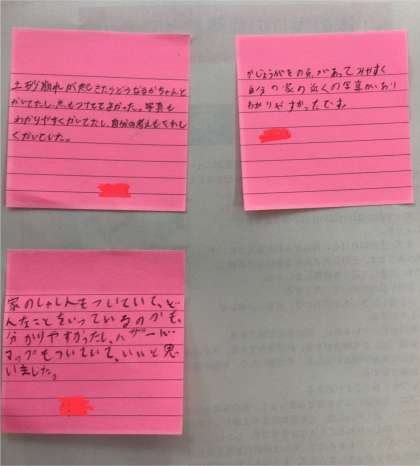 土砂崩れが起きたらどうなるかちゃんと
かいてたし、点もつけててよかった。写真も
わかりやすくかいてたし、自分の考えもくわし
くかいていました。
かじょうがきの点があってみやすく
自分の家の近くの写真があり
わかりやすかったです
家のしゃしんもついていて、ど
んなことをいっているのかも、
分かりやすかったし、ハザード
マップもついていて、いいと思
いました。